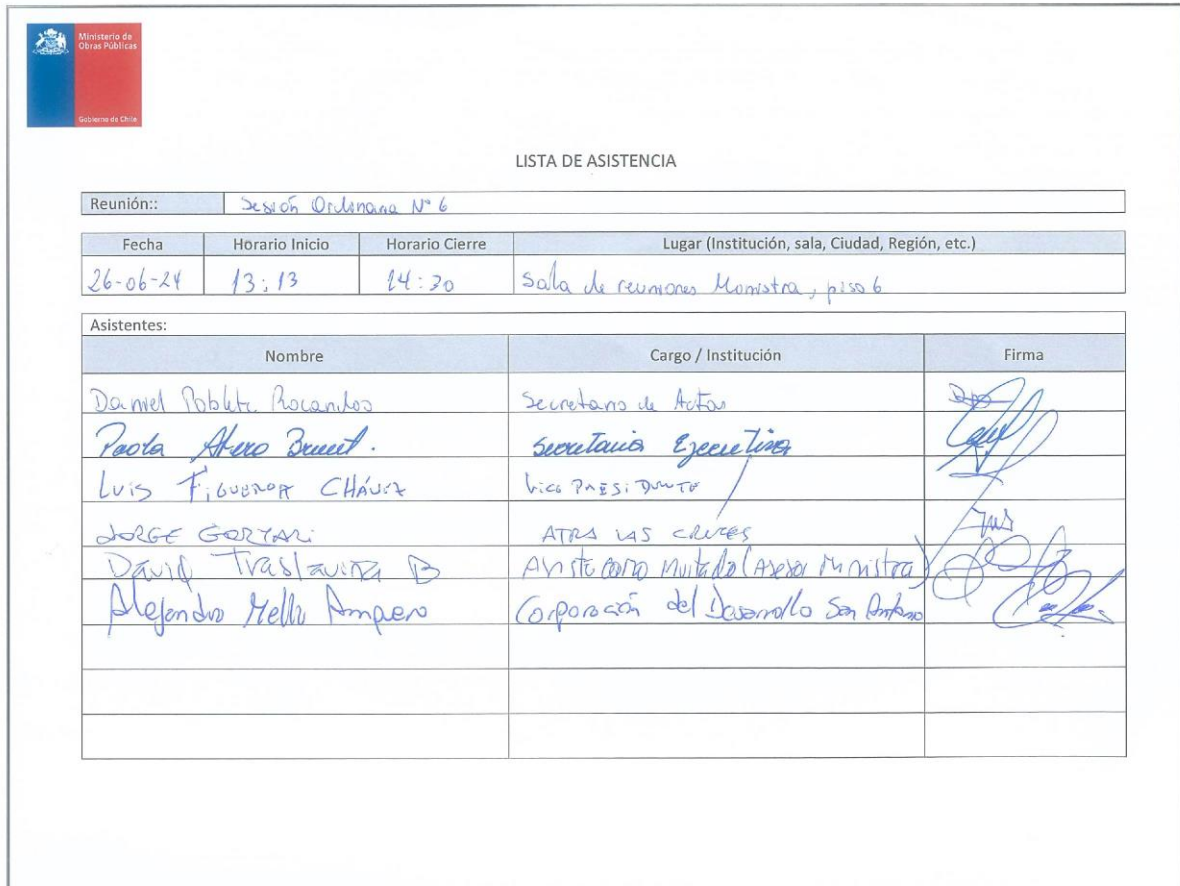 Ministerio de
Obras Públicas
Gobierno de Chile
LISTA DE ASISTENCIA
Reunión:: Sesión Ordinaria N° 6
Fecha Horario Inicio Horario Cierre Lugar (Institución, sala, Ciudad, Región, etc.)
26-06-24 13:13 14:30 Sala de reuniones Ministra, piso 6
Asistentes:
Nombre Cargo / Institución Firma
Daniel Poblete Secretario de Actas
Paola Secretaria Ejecutiva
LUIS FIGUEROA CHÁVEZ VICE PRESIDENTE
JORGE GORZARI ATRA LAS CRUCES
David Traslaviña B Asiste como invitado (Asesor Ministra)
Alejandro Mella Ampuero Corporación del Desarrollo San Antonio